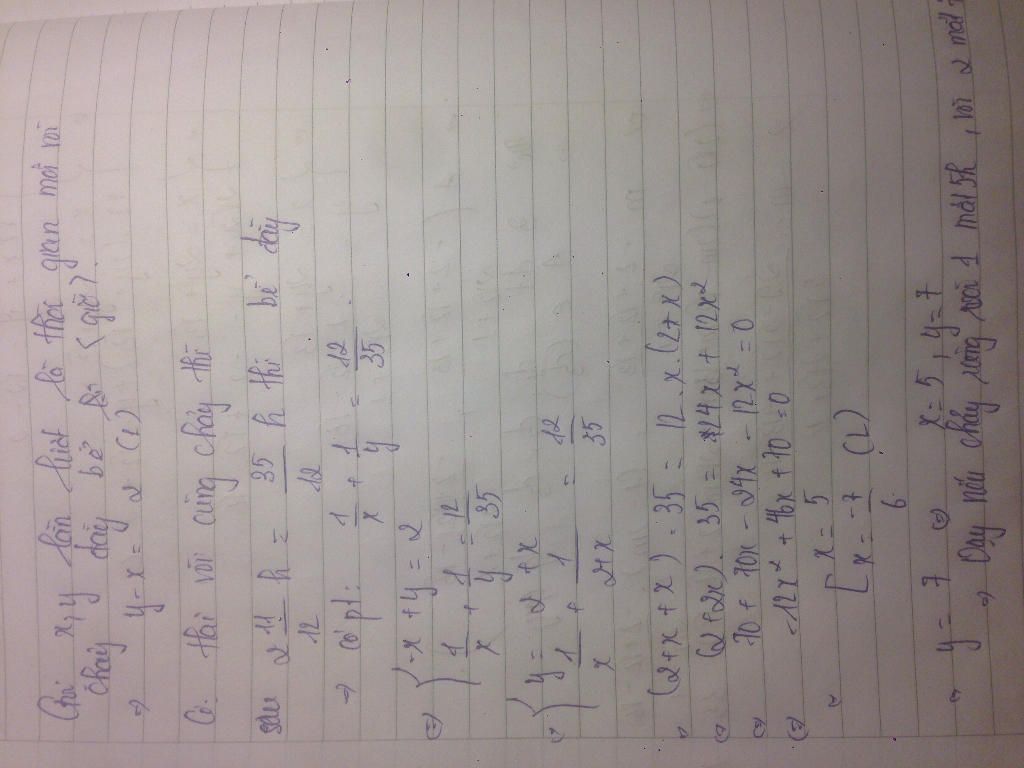 Gọi x, y lần lượt là thời gian mỗi vòi
chảy đầy bể là (giờ).
⇒ y - x = 2 (1)
C: Hai vòi cùng chảy thì
sau 2 11/12 h = 35/12 h thì bể đầy
⇒ có pt: 1/x + 1/y = 12/35.
(=) { -x + y = 2
1/x + 1/y = 12/35
{ y = 2 + x
1/x + 1/2+x = 12/35
(2 + x + x) . 35 = 12 . x . (2 + x)
(=) (2 + 2x) . 35 = 24x + 12x²
(=) 70 + 70x - 24x - 12x² = 0
(=) -12x² + 46x + 70 = 0
[ x = 5
x = -7/6 (L)
⇒ y = 7 ⇒ x = 5, y = 7
⇒ Vậy nếu chảy riêng vòi 1 mất 5h, vòi 2 mất 7